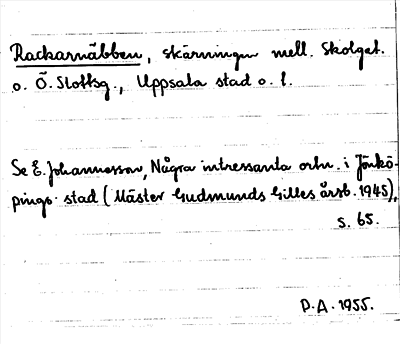 Rackarnäbben, skärningen mell. Skolgat.
o. Ö. Slottsg., Uppsala stad o. l.
Se E. Johannesson, Några intressanta ortn. i Jönkö-
pings stad (Mäster Gudmunds Gilles årsb. 1945),
s. 65.
P.A. 1955.